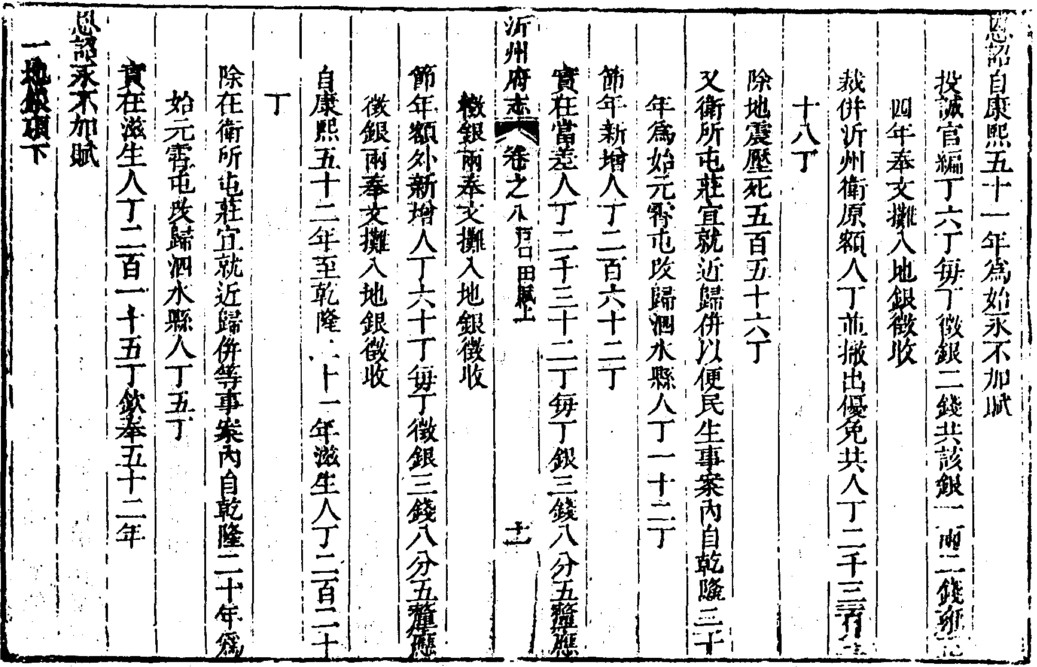 恩詔自康熙五十一年爲始永不加賦
投誠官編丁六丁每丁徵銀二錢共該銀一兩二錢雍正
四年奉文攤入地銀徵收
裁併沂州衛原額人丁並撤出優免共人丁二千三百
十八丁
除地震壓死五百五十六丁
又衛所屯莊宜就近歸併以便民生事案內自乾隆二十
年爲始元霄屯改歸泗水縣人丁一十二丁
節年新增人丁二百六十二丁
實在當差人丁二千三十二丁每丁銀三錢八分五釐應
沂州府志 卷之八 戶口田賦上 十一
徵銀兩奉文攤入地銀徵收
節年額外新增人丁六十丁每丁徵銀三錢八分五釐應
徵銀兩奉文攤入地銀徵收
自康熙五十二年至乾隆 十一年滋生人丁二百二十
丁
除在衛所屯莊宜就近歸併等事案內自乾隆二十年爲
始元霄屯改歸泗水縣人丁五丁
實在滋生人丁二百一十五丁欽奉五十二年
恩詔永不加賦
一地銀項下